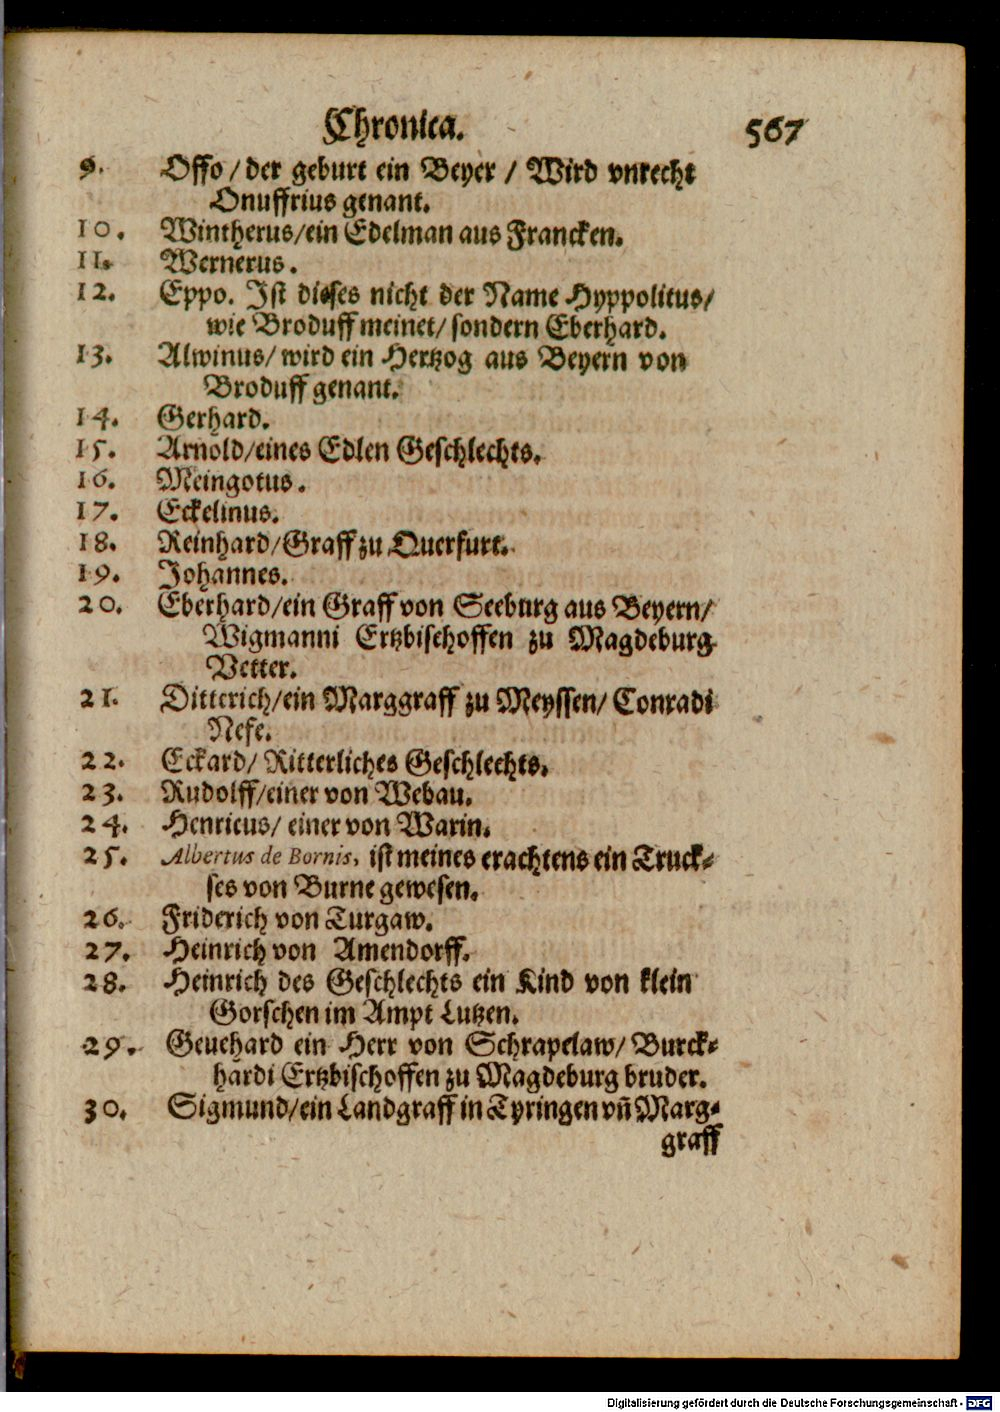 Chronica. 567
9. Offo / der geburt ein Beyer / Wird vnrecht
Onuffrius genant.
10. Wintherus/ein Edelman aus Francken.
11. Wernerus.
12. Eppo. Ist dieses nicht der Name Hyppolitus/
wie Broduff meinet/ sondern Eberhard.
13. Alwinus/ wird ein Hertzog aus Beyern von
Broduff genant.
14. Gerhard.
15. Arnold/eines Edlen Geschlechts.
16. Meingotus.
17. Eckelinus.
18. Reinhard/Graff zu Querfurt.
19. Johannes.
20. Eberhard/ein Graff von Seeburg aus Beyern/
Wigmanni Ertzbischoffen zu Magdeburg
Vetter.
21. Ditterich/ein Marggraff zu Meyssen/ Conradi
Nefe.
22. Eckard/ Ritterliches Geschlechts.
23. Rudolff/einer von Webau.
24. Henricus/ einer von Warin.
25. Albertus de Bornis, ist meines erachtens ein Truck-
ses von Burne gewesen.
26. Friderich von Turgaw.
27. Heinrich von Amendorff.
28. Heinrich des Geschlechts ein Kind von klein
Gorschen im Ampt Lutzen.
29. Geuehard ein Herr von Schrapelaw/ Burck-
hardi Ertzbischoffen zu Magdeburg bruder.
30. Sigmund/ein Landgraff in Tyringen vñ Marg-
graff
Digitalisierung gefördert durch die Deutsche Forschungsgemeinschaft - DFG